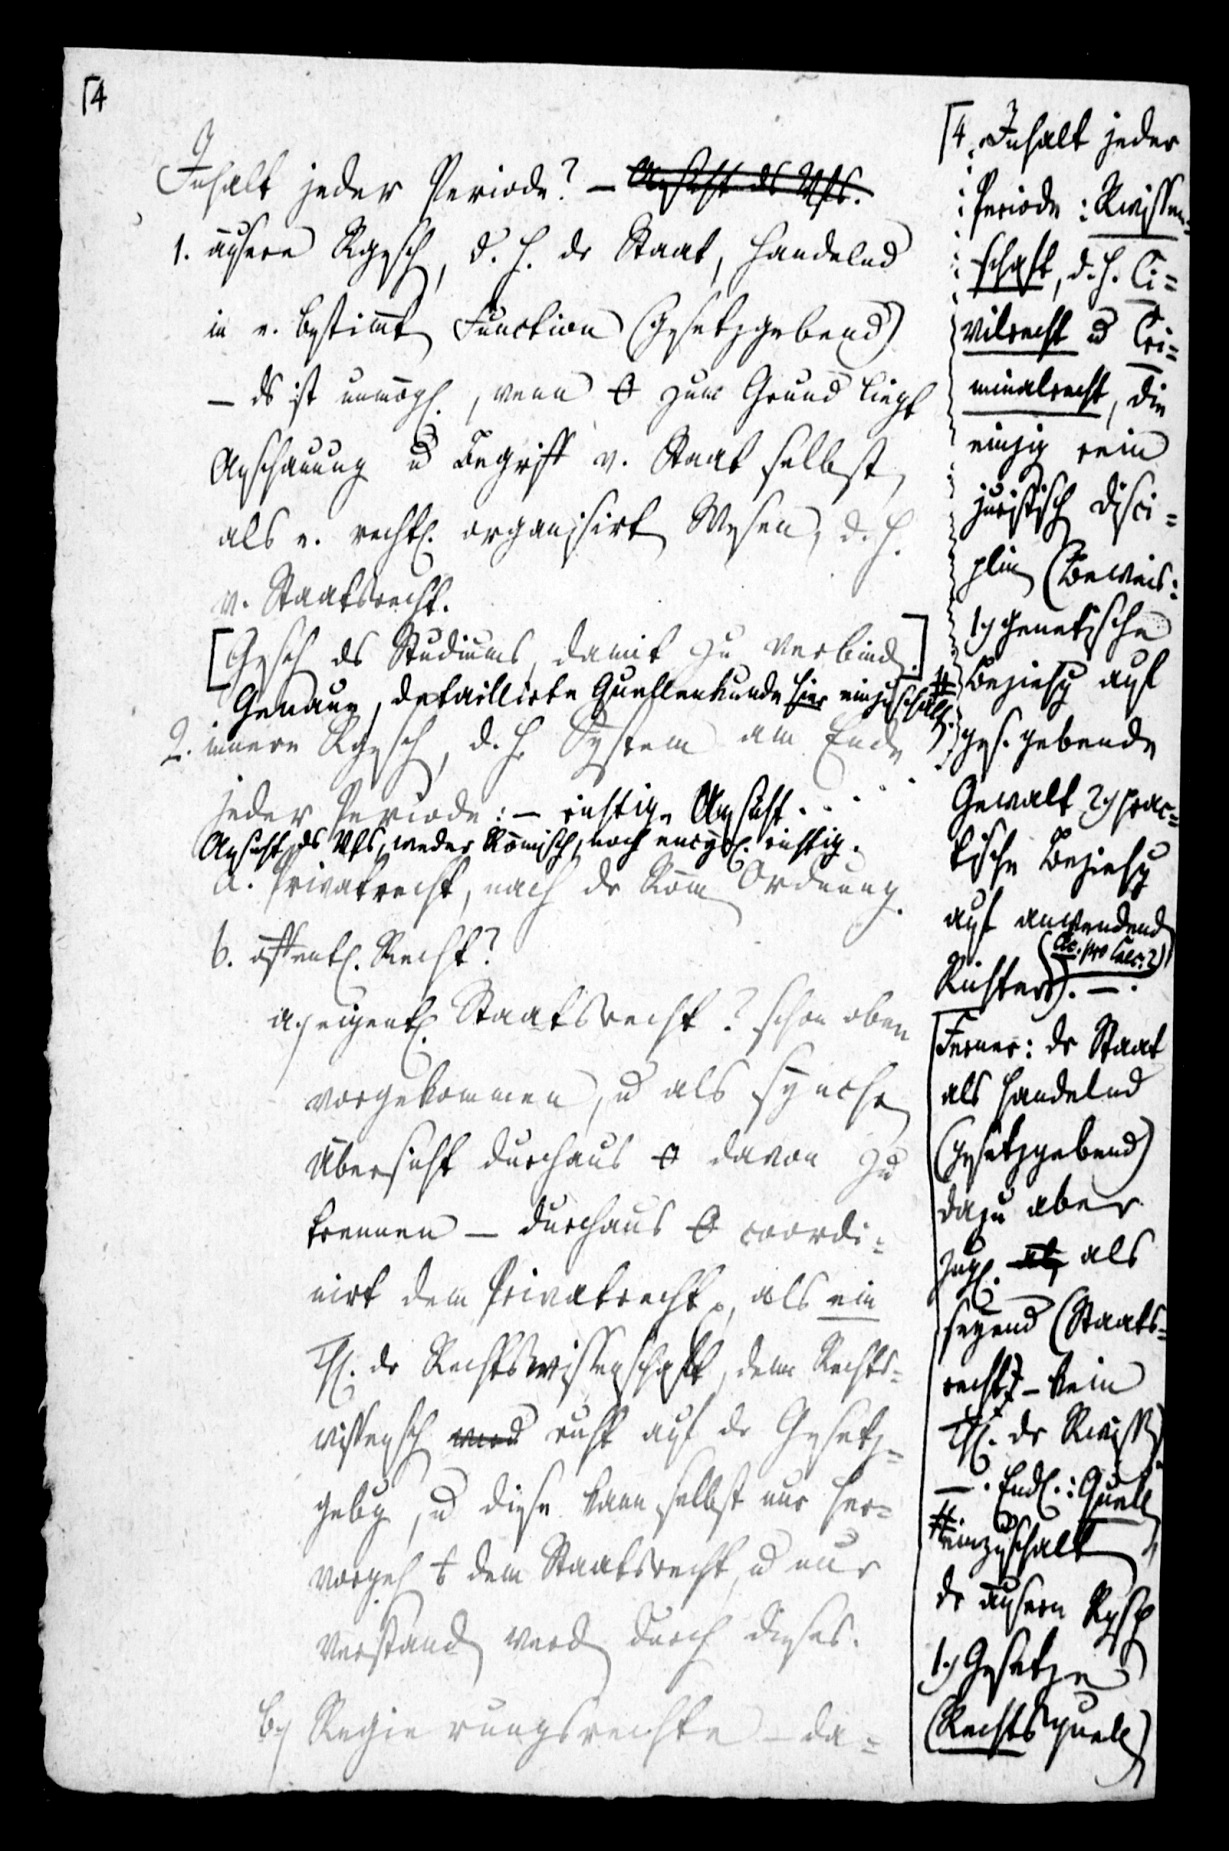 ⌈4
Inhalt jeder Periode? — Ansicht ds Vfs.
1. äusere Rgesch, d. h. dr Staat, handelnd
in e. bestimt Function (gesetzgebend)
— ds ist unmögl., wenn zum Grund liegt
Anschauung u Begriff v. Staat selbst,
als e. rechtl. organisirt Wesen, d. h.
v. Staatsrecht.
[Gesch ds Studiums, damit zu verbind.]
Genaue, detaillirte Quellenkunde hier einzuschalt.
2. innere Rgesch, d. h. System am Ende
jeder Periode: — richtige Ansicht . . . .
Ansicht ds Vfs, weder Römisch, noch richtig.
a. Privatrecht, nach dr Röm Ordnung.
b. öffentl. Recht?
a.) eigentl. Staatsrecht? schon oben
vorgekommen, u als synchr
Übersicht durchaus davon zu
trennen — durchaus coordi=
nirt dem Privatrecht, als ein
Th. dr Rechtswissenschaft, denn Rechts=
wissensch ruht auf dr Gesetz=
gebg, u diese kann selbst nur her=
vorgeh dem Staatsrecht, u nur
verstand werd durch dieses.
b.) Regierungsrechte — da=
⌈4. Inhalt jeder
Periode: Rwissen=
schaft, d. h. Ci=
vilrecht u Cri=
minalrecht, die
einzig rein
juristisch Disci=
plin (Beweis:
1.) genetische
Beziehg auf
ges. gebende
Gewalt 2.) prac=
tische Beziehg
auf anwendend
(Cic. pro Caec. 2)
Richter). —.
Ferner: dr Staat
als handelnd
(gesetzgebend)
dazu aber
zugl. als
seyend (Staats=
recht) — kein
Th. dr Rwiss
—. Endl.: Quell
# einzuschalt
dr äusern Rgesch
1.) Gesetze
(Rechtsquell)